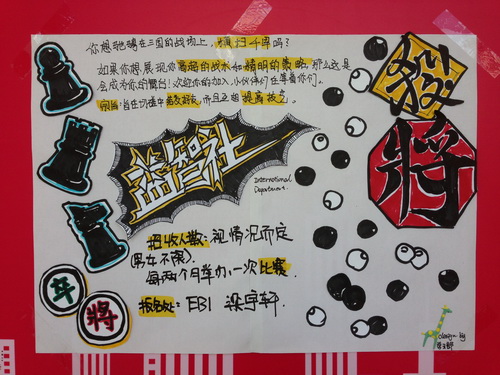 你想驰骋在三国的战场上，横扫千军吗？
如果你想展现你高超的战术和精明的策略，那么这是
会成为你的舞台！欢迎你的加入，小伙伴们在等着你们。
宗旨：旨在切磋中结交好友，而且互相提高技艺。
益智社
International
Department.
招收人数：视情况而定
(男女不限)。
每两个月举办一次比赛.
报名处：EB1 梁宇轩.
发
將
卒
將
design by